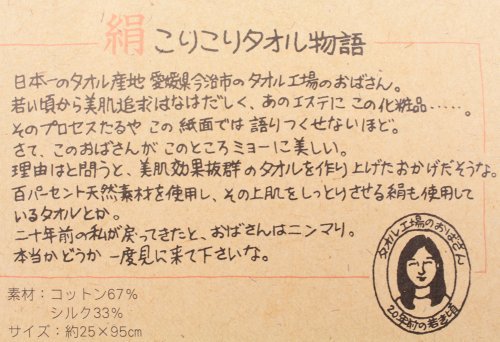 絹 こりこりタオル物語
日本一のタオル産地 愛媛県今治市のタオル工場のおばさん。
若い頃から美肌追求はなはだしく、あのエステに この化粧品……。
そのプロセスたるや この 紙面では 語りつくせないほど。
さて、このおばさんが このところミョーに美しい。
理由はと問うと、美肌効果抜群 のタオルを作り上げたおかげだそうな。
百パーセント天然素材を使用し、その上肌をしっとりさせる絹も使用して
いるタオルとか。
二十年前の私が戻ってきたと、おばさんはニンマリ。
本当かどうか 一度見に来て下さいな。
タオル工場のおばさん
20年前の若き頃
素材：コットン67%
シルク33%
サイズ：約25×95cm